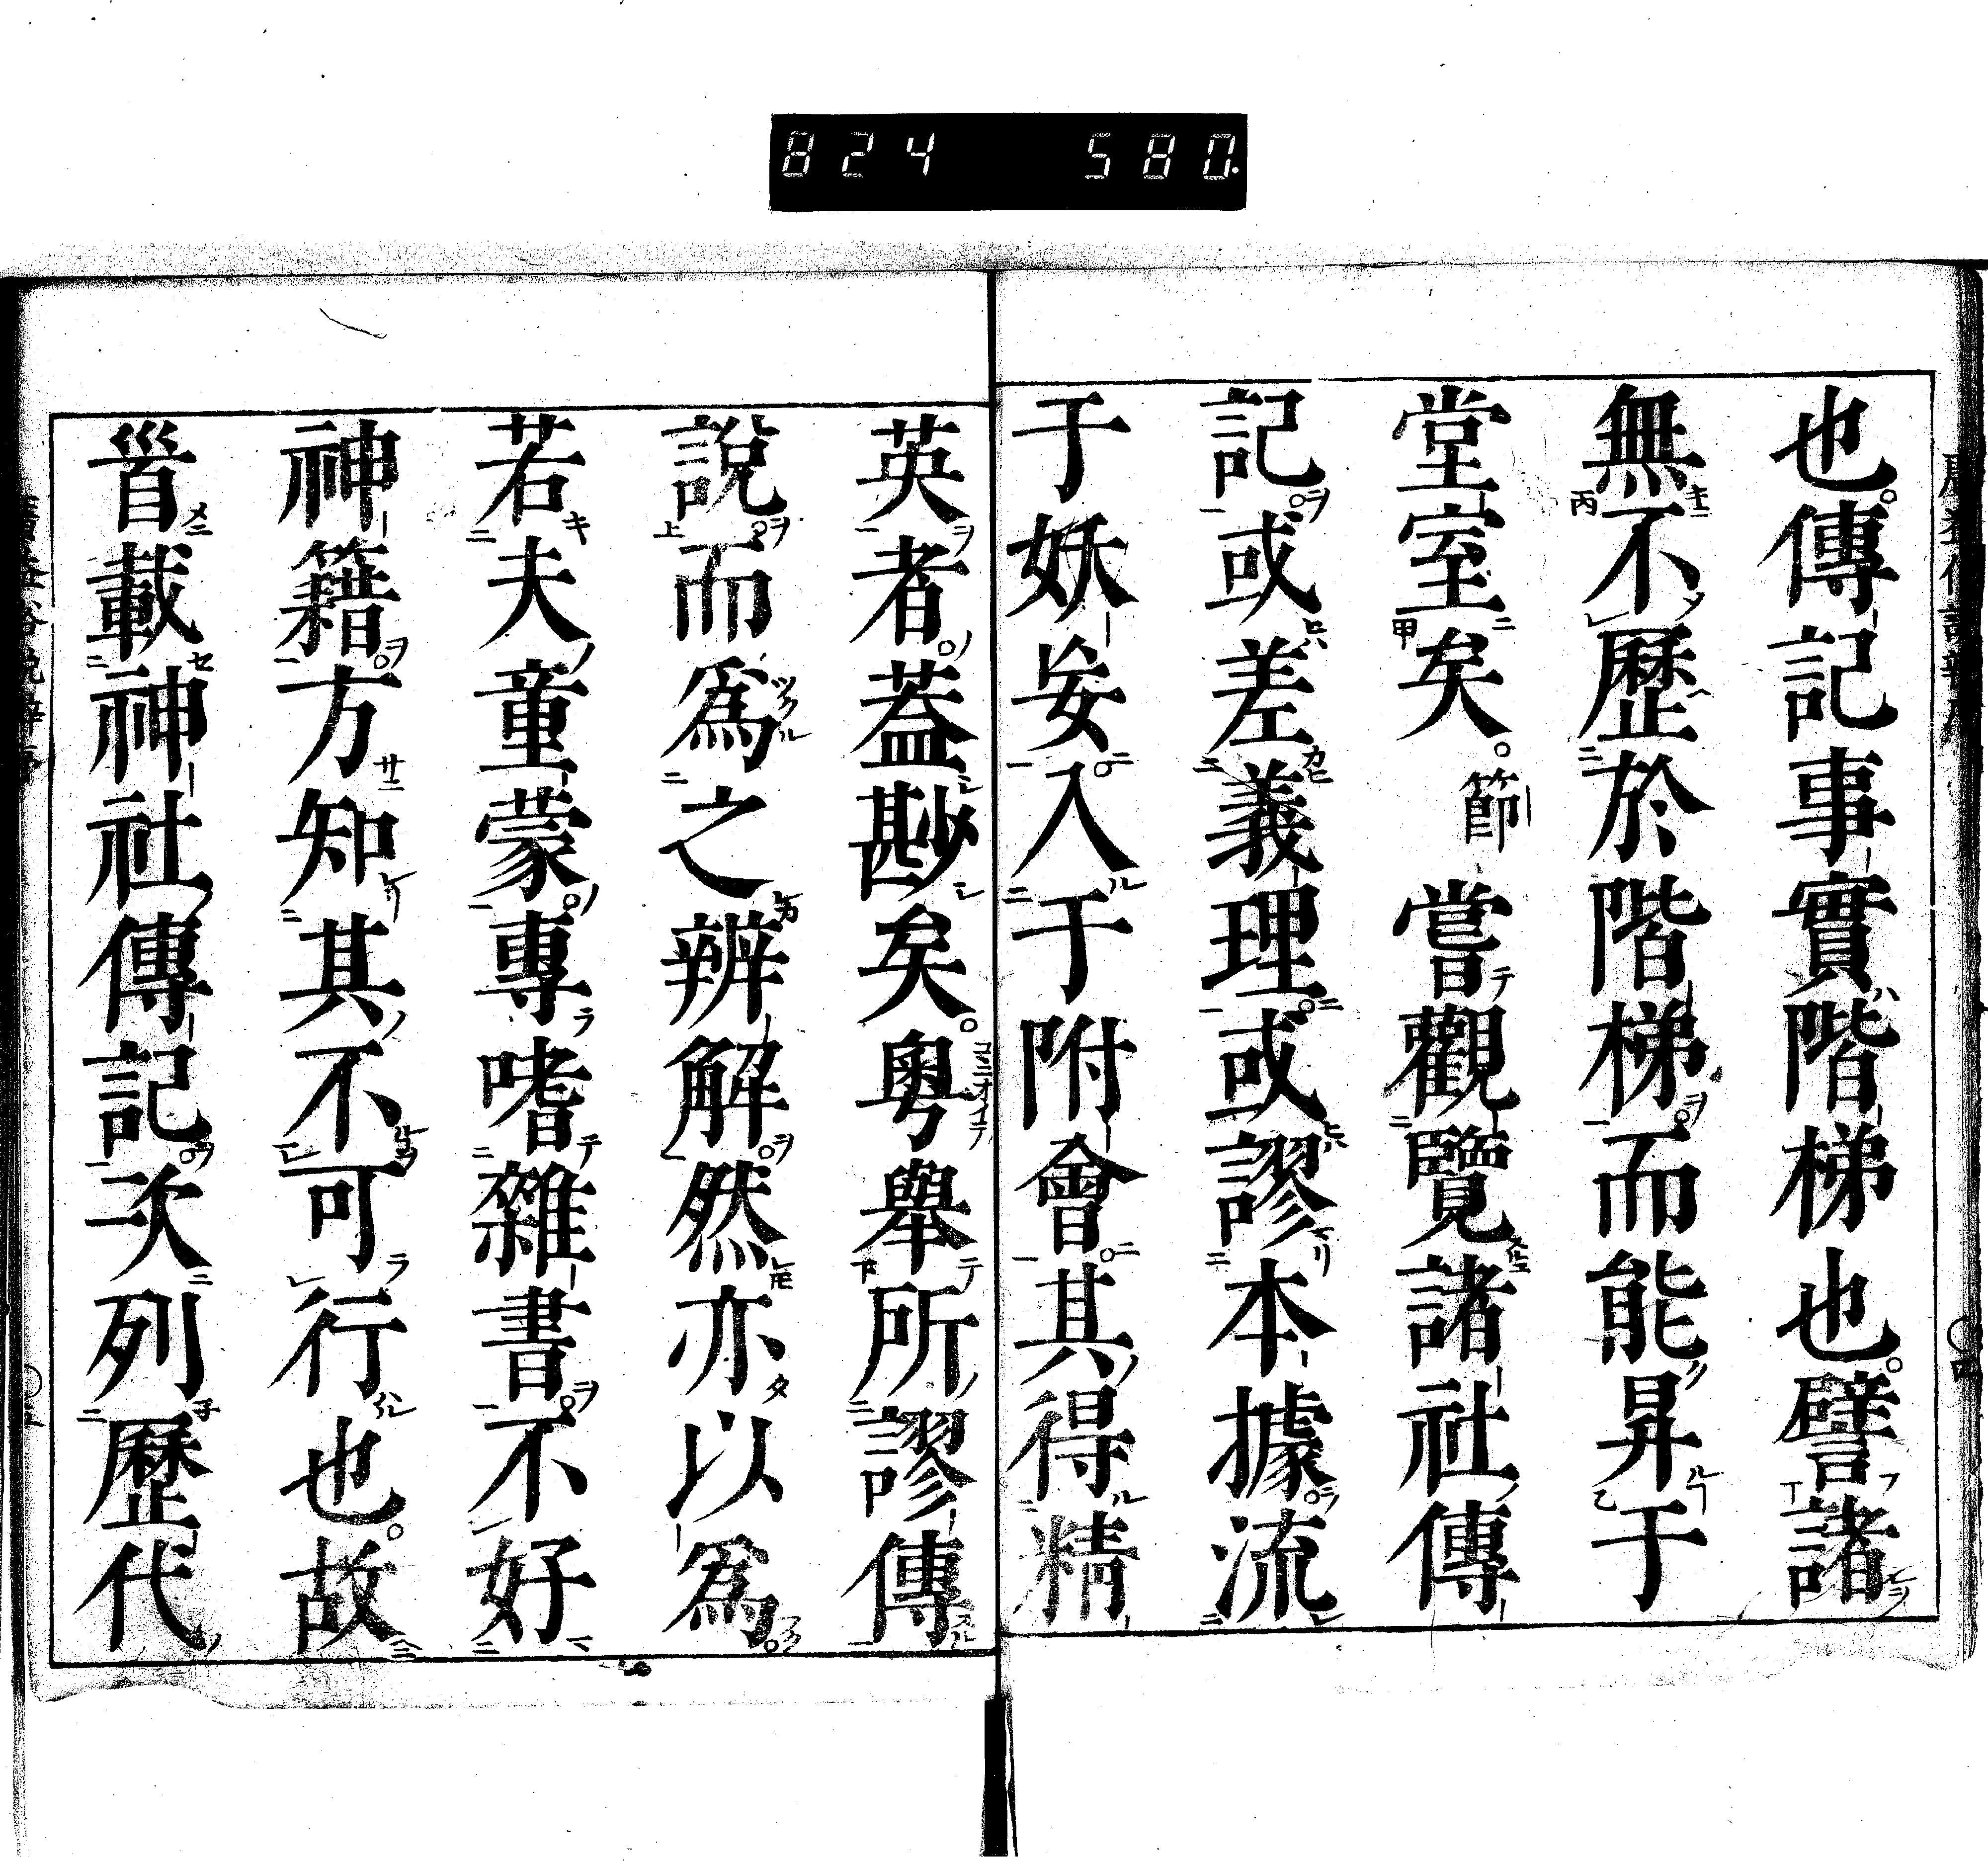 824 580.
也傳記事實階梯也譬諸
無不歷於階梯而能昇于
堂室矣節嘗觀覽諸社傳
記或差義理或謬本據流
于妖妄入于附會其得精
英者蓋尠矣粵舉所謬傳
說而爲之辨解然亦以爲
若夫童蒙專嗜雜書不好
神籍方知其不可行也故
首載神社傳記次列歷代